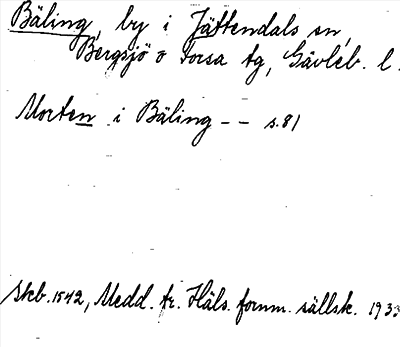 Bäling, by i Jättendals sn,
Bergsjö o Forsa tg, Gävleb. l.
Morten i Bäling -- s. 81
Skb. 1542, Medd. fr. Häls. fornm. sällsk. 1933